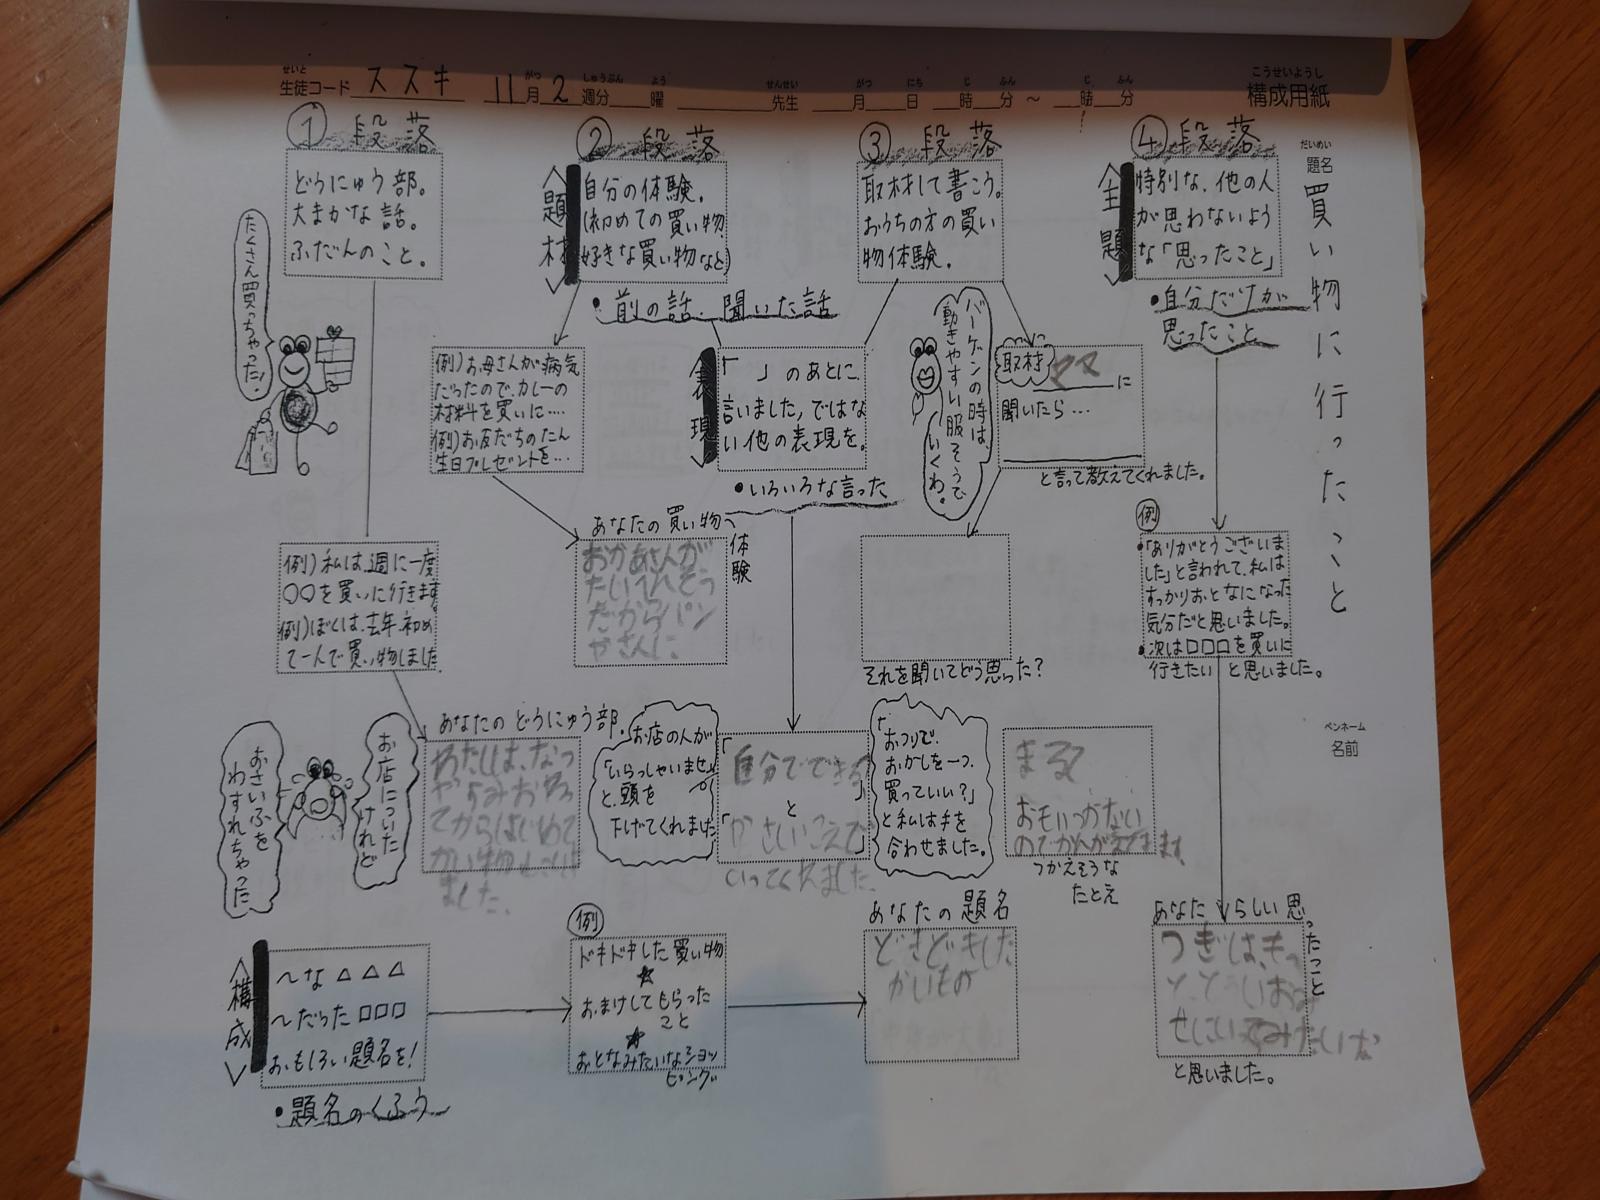 せいと
生徒コード ススキ 11月2週分 曜 先生 月 日 時 分 ～ 時 分
がつ しゅうぶん よう せんせい がつ にち じ ふん じ ふん
こうせいようし
構成用紙
だいめい
題名
買い物に行ったこと
ペンネーム
名前
① 段落
どうにゅう部。
大まかな話。
ふだんのこと。
たくさん買っちゃった!
例)私は、週に一度
○○を買いに行きます。
例)ぼくは、去年、初め
て一人で買い物しました
あなたのどうにゅう部
わたしは、なつ
やすみおわっ
てからはじめて
かい物
ました。
お店についた
けれど
おさいふを
わすれちゃった
② 段落
〈題材〉
自分の体験。
(初めての買い物、
好きな買い物など)
・前の話、聞いた話
例)お母さんが病気
だったので、カレーの
材料を買いに‥‥
例)お友だちのたん
生日プレゼントを‥‥
あなたの買い物
体験
おかあさんが
たいへんそう
だからパン
やさんに。
〈表現〉
「 」のあとに、
言いました,ではな
い他の表現を。
・いろいろな言った
お店の人が
「いらっしゃいませ」
と、頭を
下げてくれました
「自分でできる」
と
「やさしいこえで」
いってくれました。
「おつりで、
おかしを一つ、
買っていい?」
と私は手を
合わせました。
③ 段落
取材して書こう。
おうちの方の買い
物体験。
バーゲンの時は、
動きやすい服そうで
いくわ。
取材
ママ に
聞いたら…
と言って教えてくれました。
それを聞いてどう思った?
まるで
おもいつかない
のでかんがえてきます
つかえそうな
たとえ
④ 段落
〈主題〉
特別な、他の人
が思わないよう
な「思ったこと」
・自分だけが
思ったこと
例
・「ありがとうございま
した」と言われて、私は
すっかりおとなになった
気分だと思いました。
・次は□□□を買いに
行きたい と思いました。
あなたらしい思
ったこと
つぎは、もっ
と、とういおみ
せにいってみたいな
と思いました。
〈構成〉
～な △△△
～だった □□□
おもしろい題名を!
・題名のくふう
例
ドキドキした買い物
★
おまけしてもらった
こと
★
おとなみたいなショッ
ピング
あなたの題名
どきどきした
かいもの